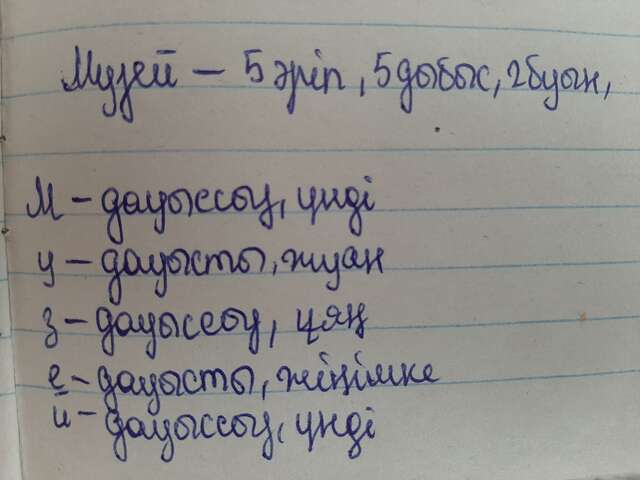 Музей – 5 әріп, 5 дыбыс, 2 буын,
М – дауыссыз, үнді
у – дауысты, жуан
з – дауыссыз, ұяң
е – дауысты, жіңішке
й – дауыссыз, үнді